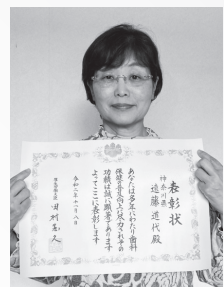 表彰状
神奈川県
遠藤道代殿
あなたは多年にわたり歯科
保健の普及向上に尽力され その
功績は誠に顕著であります
よってここに表彰します
令和二年十一月八日
厚生労働大臣 田村憲久